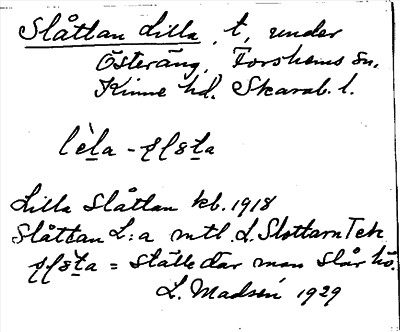 Slåttan Lilla, t, under
Österäng, Forshems sn,
Kinne hd. Skarab. l.
lèla -
Lilla Slåttan kb. 1918
Slåttan L:a mtl. L. Slottarn Tek
= Ställe där man slår hö.
L. Madsén 1929